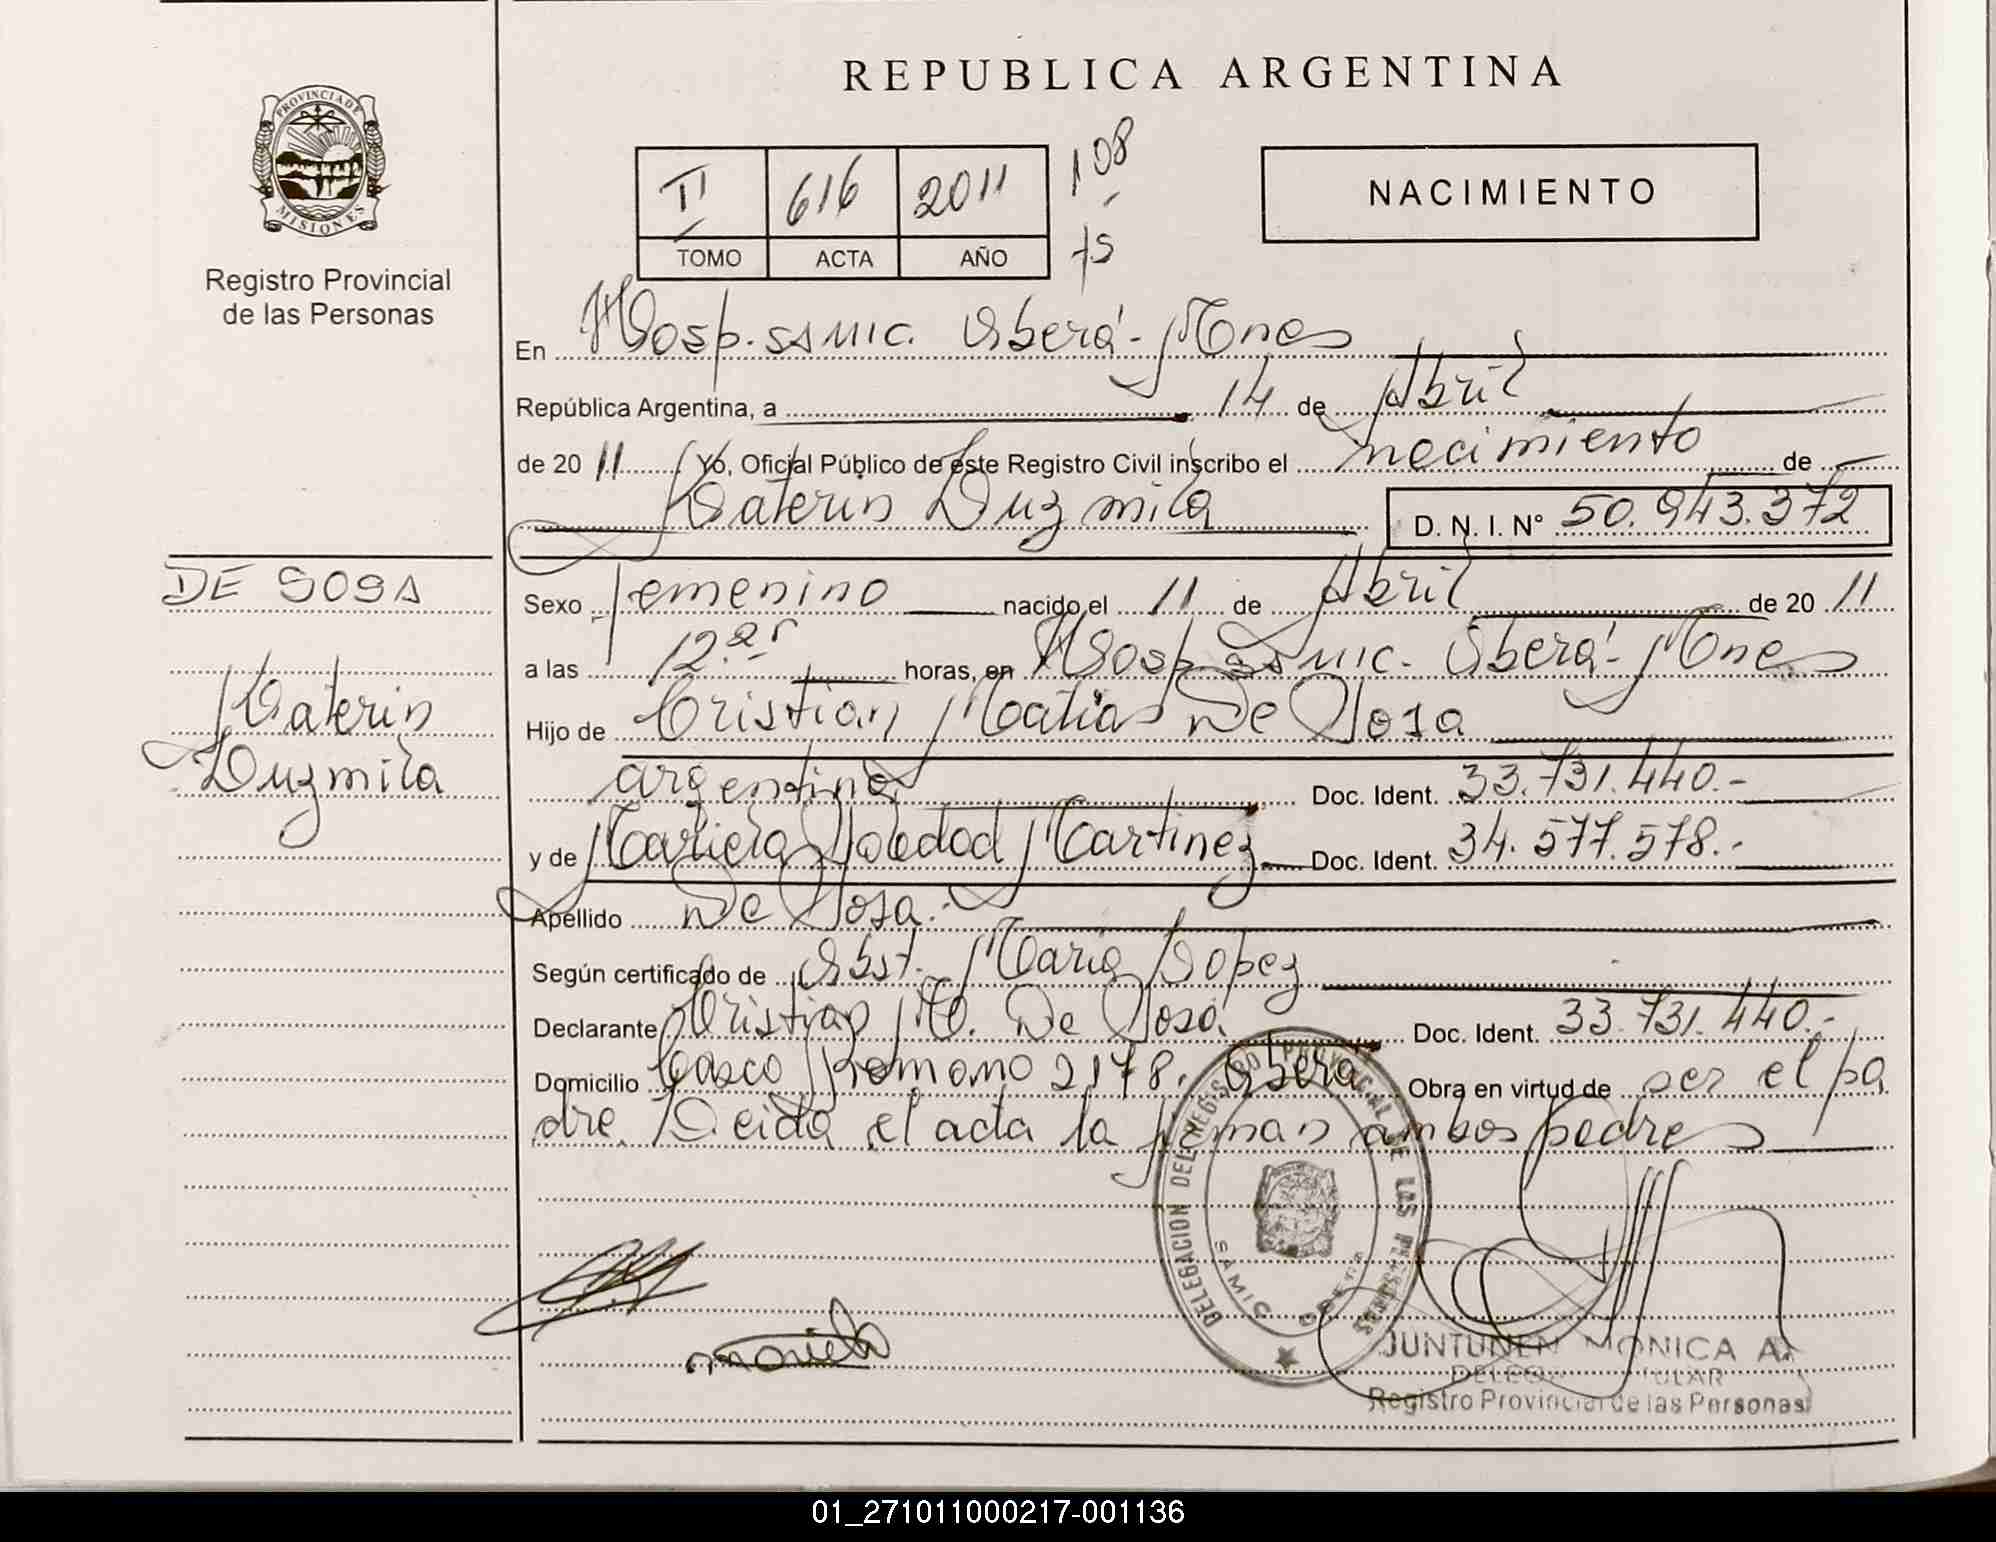 PROVINCIA DE
MISIONES
Registro Provincial
de las Personas
DE SOSA
Katerin
Luzmila
REPUBLICA ARGENTINA
II 616 2011 108
TOMO ACTA AÑO
NACIMIENTO
En Hosp. SAMIC. Oberá - Mnes
República Argentina, a 14 de Abril
de 2011 Yo, Oficial Público de este Registro Civil inscribo el nacimiento de
Katerin Luzmila D. N. I. N° 50.943.372
Sexo femenino nacido el 11 de Abril de 2011
a las 12 horas, en Hosp. SAMIC. Oberá - Mnes
Hijo de Cristian Matias De Sosa
argentino Doc. Ident. 33.731.440.-
y de Mariela Soledad Martinez Doc. Ident. 34.577.578.-
Apellido De Sosa.-
Según certificado de Obst. Maria Lopez
Declarante Cristian M. De Sosa Doc. Ident. 33.731.440.-
Domicilio Casco Romano 2178. Oberá Obra en virtud de ser el pa
dre. Leida el acta la firman ambos padres
DELEGACION DEL REGISTRO PROVINCIAL DE LAS PERSONAS
SAMIC OBERA
mariela
JUNTUNEN MONICA A.
Registro Provincial de las Personas
01_271011000217-001136